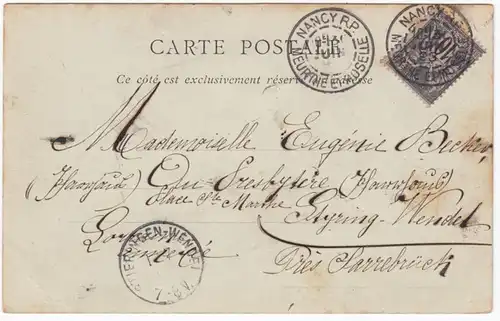 CARTE POSTALE
Ce côté est exclusivement réservé à l'adresse
NANCY R.P.
MEURTHE ET MOSELLE
NANCY R.P.
MEURTHE ET MOSELLE
Mademoiselle Eugénie Becker
(Pfarrhaus) Au Presbytère (Pfarrhaus)
Place Ste Marthe Styring-Wendel
Lorraine
Près Sarrebrück
STIERINGEN-WENDEL